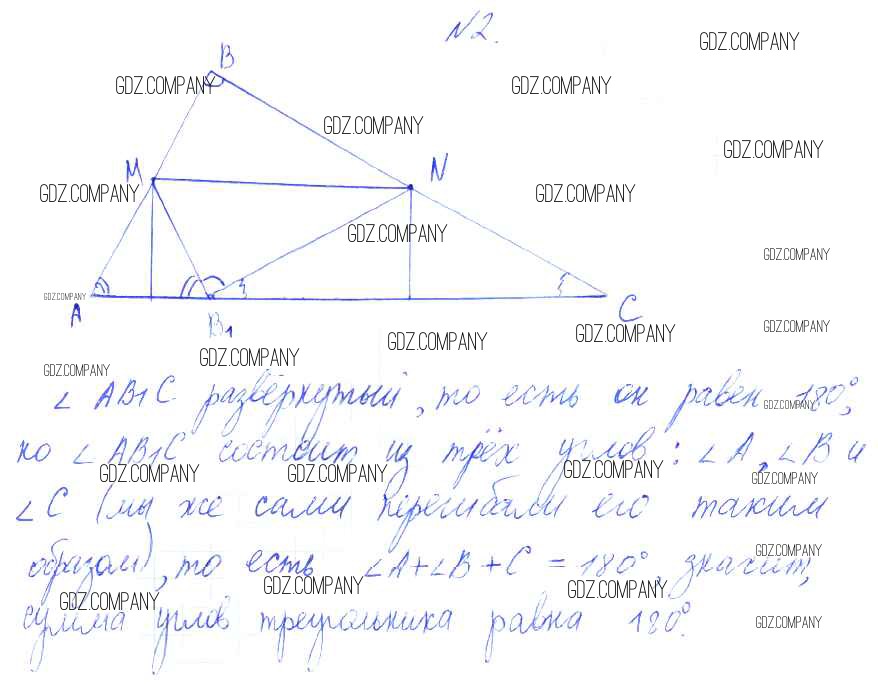 N2.
GDZ.COMPANY
B
GDZ.COMPANY GDZ.COMPANY
GDZ.COMPANY
GDZ.COMPANY
M N
GDZ.COMPANY GDZ.COMPANY
GDZ.COMPANY
GDZ.COMPANY
GDZ.COMPANY
A B1 C
GDZ.COMPANY
GDZ.COMPANY GDZ.COMPANY GDZ.COMPANY
GDZ.COMPANY
∠ AB1C развёрнутый, то есть он равен 180°,
GDZ.COMPANY
но ∠AB1C состоит из трёх углов: ∠A, ∠B и
GDZ.COMPANY GDZ.COMPANY GDZ.COMPANY GDZ.COMPANY
∠C (мы же сами перегибали его таким
образом), то есть ∠A+∠B+C = 180°, значит,
GDZ.COMPANY
GDZ.COMPANY GDZ.COMPANY GDZ.COMPANY
сумма углов треугольника равна 180°.
GDZ.COMPANY